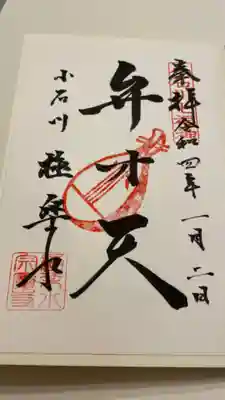 奉拝 令和四年一月二日
弁才天
小石川 極楽水